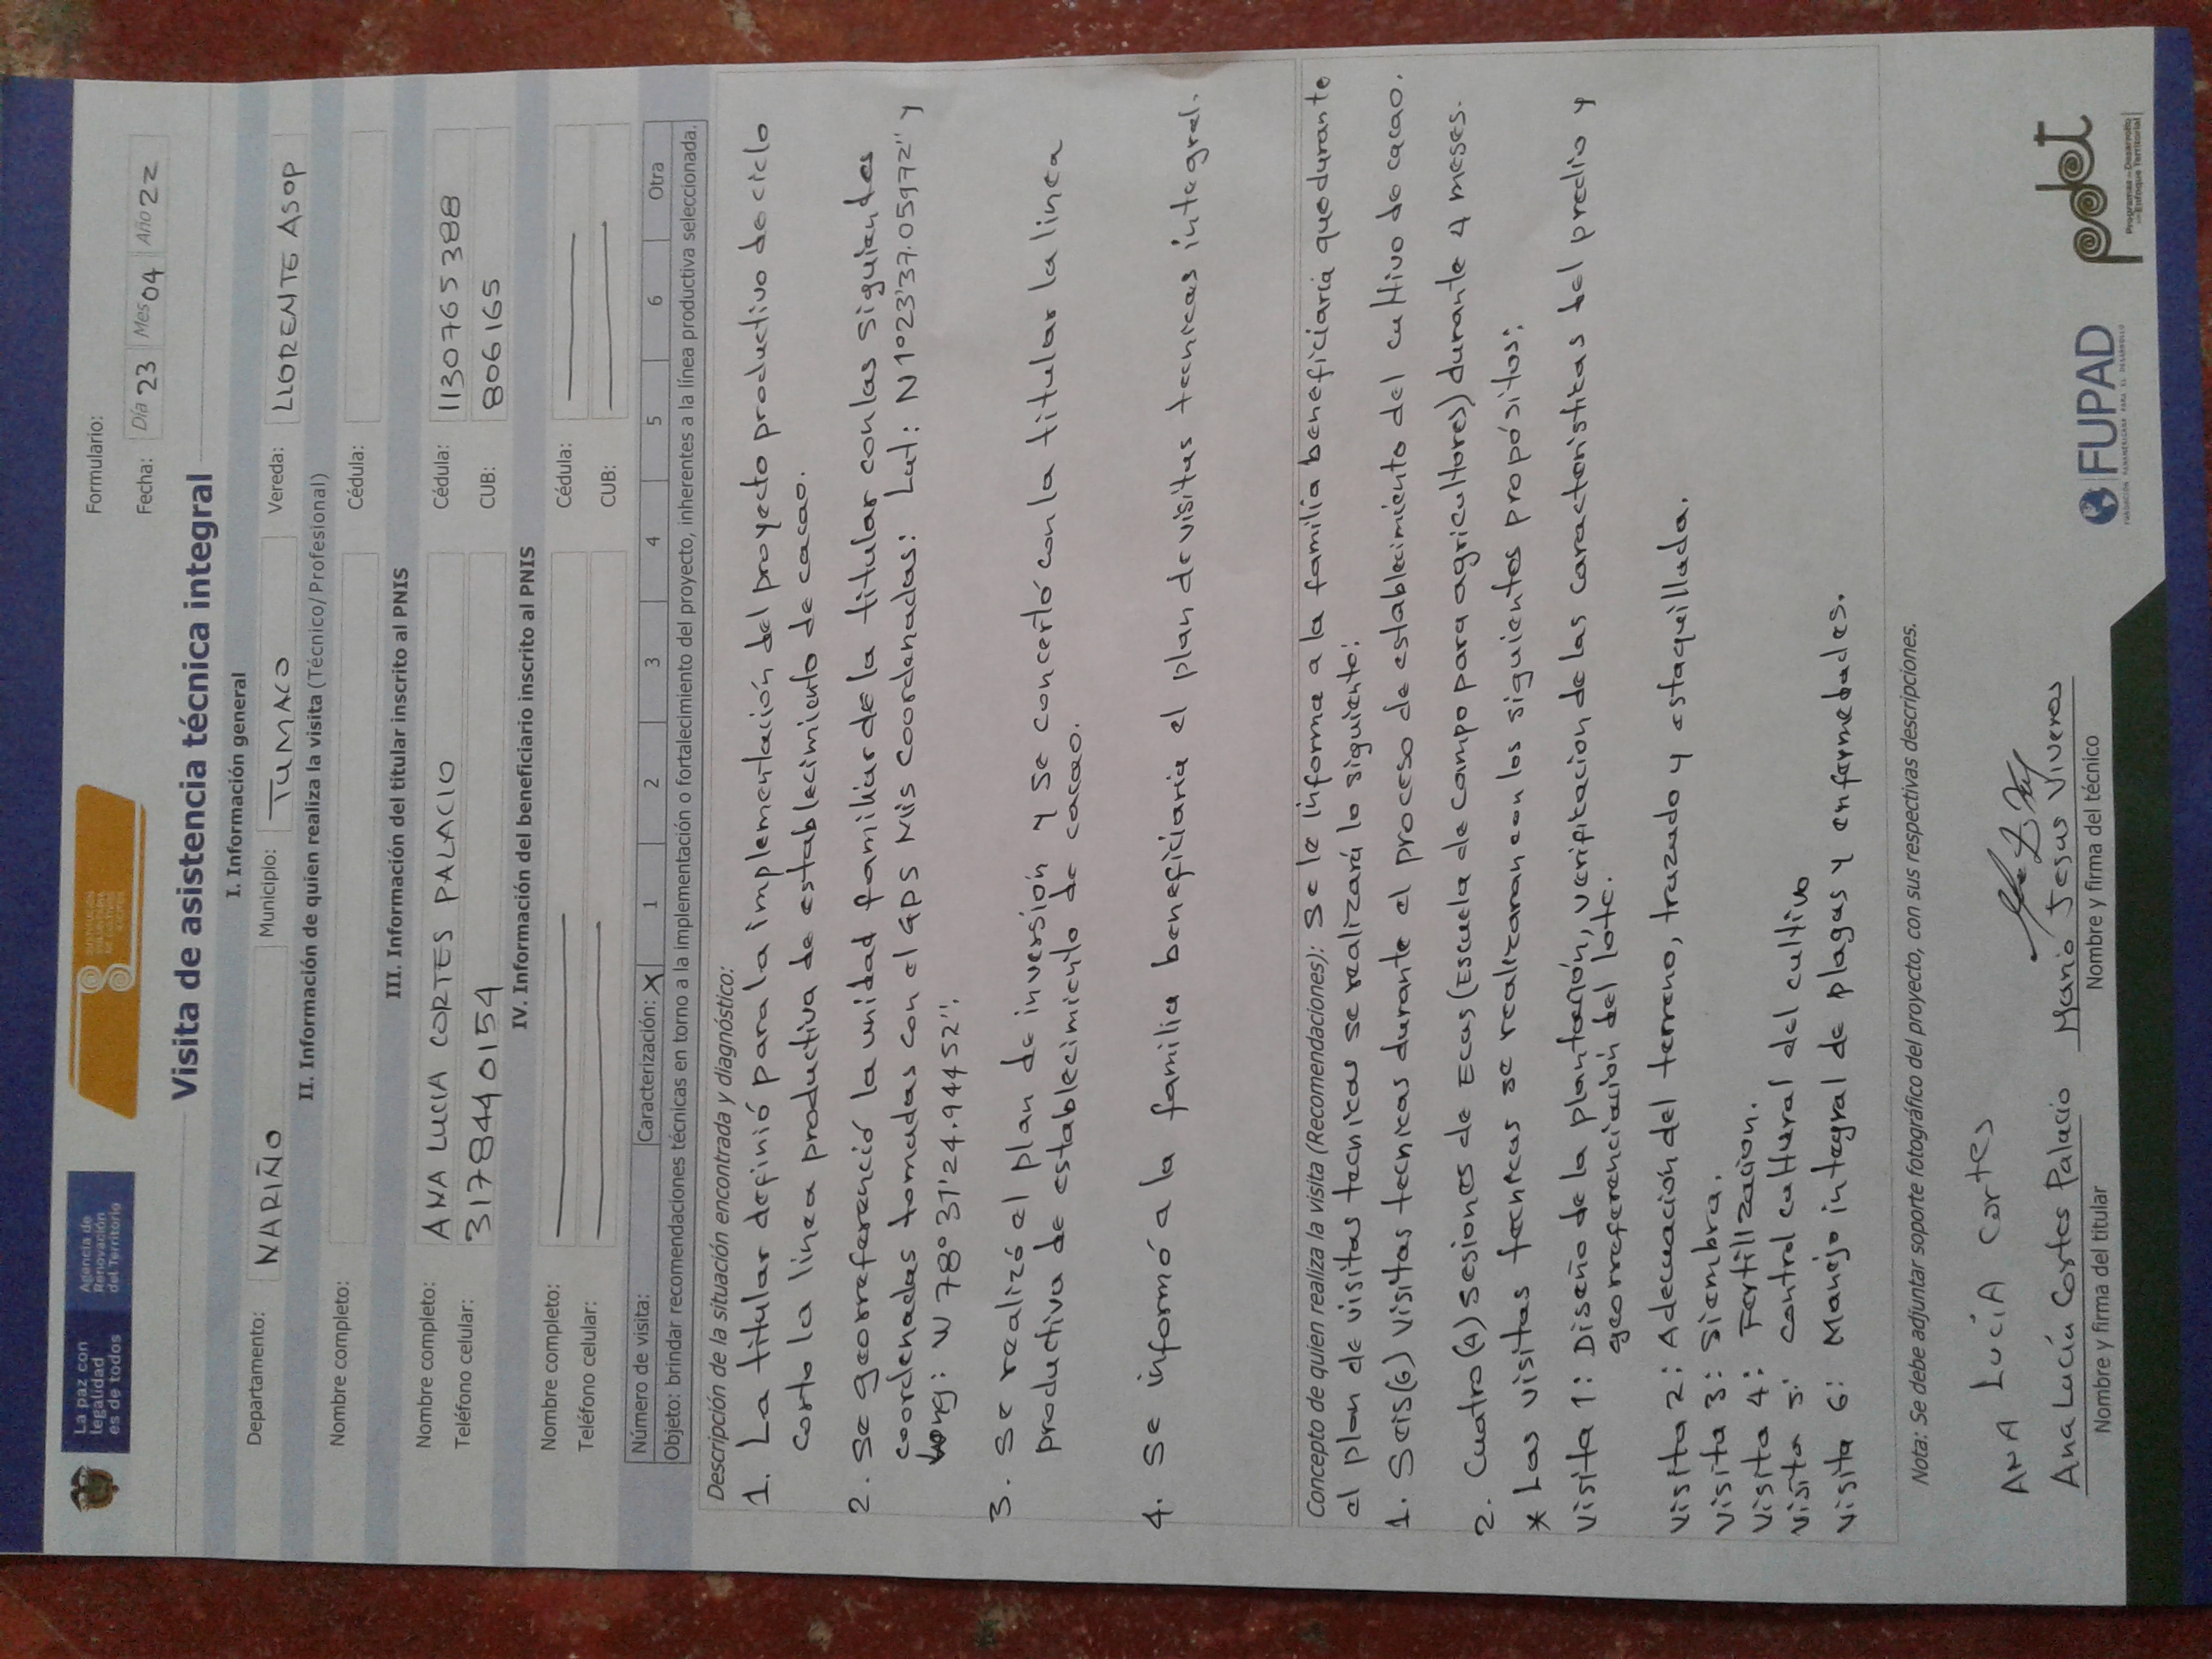 La paz con
legalidad
es de todos
Agencia de
Renovación
del Territorio
SUSTITUCIÓN
VOLUNTARIA
Formulario:
Fecha: Día 23 Mes 04 Año 22
Visita de asistencia técnica integral
I. Información general
Departamento: NARIÑO Municipio: TUMACO Vereda: LLORENTE ASOP
II. Información de quien realiza la visita (Técnico/ Profesional)
Nombre completo: Cédula:
III. Información del titular inscrito al PNIS
Nombre completo: ANA LUCIA CORTES PALACIO Cédula: 1130765388
Teléfono celular: 3178440154 CUB: 806165
IV. Información del beneficiario inscrito al PNIS
Nombre completo: Cédula:
Teléfono celular: CUB:
Número de visita: Caracterización: X 1 2 3 4 5 6 Otra
Objeto: brindar recomendaciones técnicas en torno a la implementación o fortalecimiento del proyecto, inherentes a la línea productiva seleccionada.
Descripción de la situación encontrada y diagnóstico:
1. La titular definió para la implementación del proyecto productivo de ciclo
corto la linea productiva de establecimiento de cacao.
2. Se georreferenció la unidad familiar de la titular con las siguientes
coordenadas tomadas con el GPS Mis Coordenadas: Lat: N1°23'37.05972" y
Long: W 78° 31'24.94452".
3. Se realizó el plan de inversión y se concertó con la titular la linea
productiva de establecimiento de cacao.
4. Se informó a la familia beneficiaria el plan de visitas tecnicas integral.
Concepto de quien realiza la visita (Recomendaciones): Se le informa a la familia beneficiaria que durante
el plan de visitas tecnicas se realizará lo siguiente:
1. Seis(6) visitas tecnicas durante el proceso de establecimiento del cultivo de cacao.
2. Cuatro(4) sesiones de Ecas (Escuela de Campo para agricultores) durante 4 meses.
* Las visitas tecnicas se realizaran con los siguientes propósitos:
Visita 1: Diseño de la plantación, verificacion de las caracteristicas del predio y
georreferenciación del lote.
Visita 2: Adecuación del terreno, trazado y estaquillada.
Visita 3: Siembra.
Visita 4: Fertilizacion.
Visita 5: control cultural del cultivo
Visita 6: Manejo integral de plagas y enfermedades.
Nota: Se debe adjuntar soporte fotográfico del proyecto, con sus respectivas descripciones.
ANA LUCIA Cortes
Ana Lucía Cortes Palacio Mario Jesus Viveros
Nombre y firma del titular Nombre y firma del técnico
FUPAD
FUNDACIÓN PANAMERICANA PARA EL DESARROLLO
pdet
Programas de Desarrollo
con Enfoque Territorial